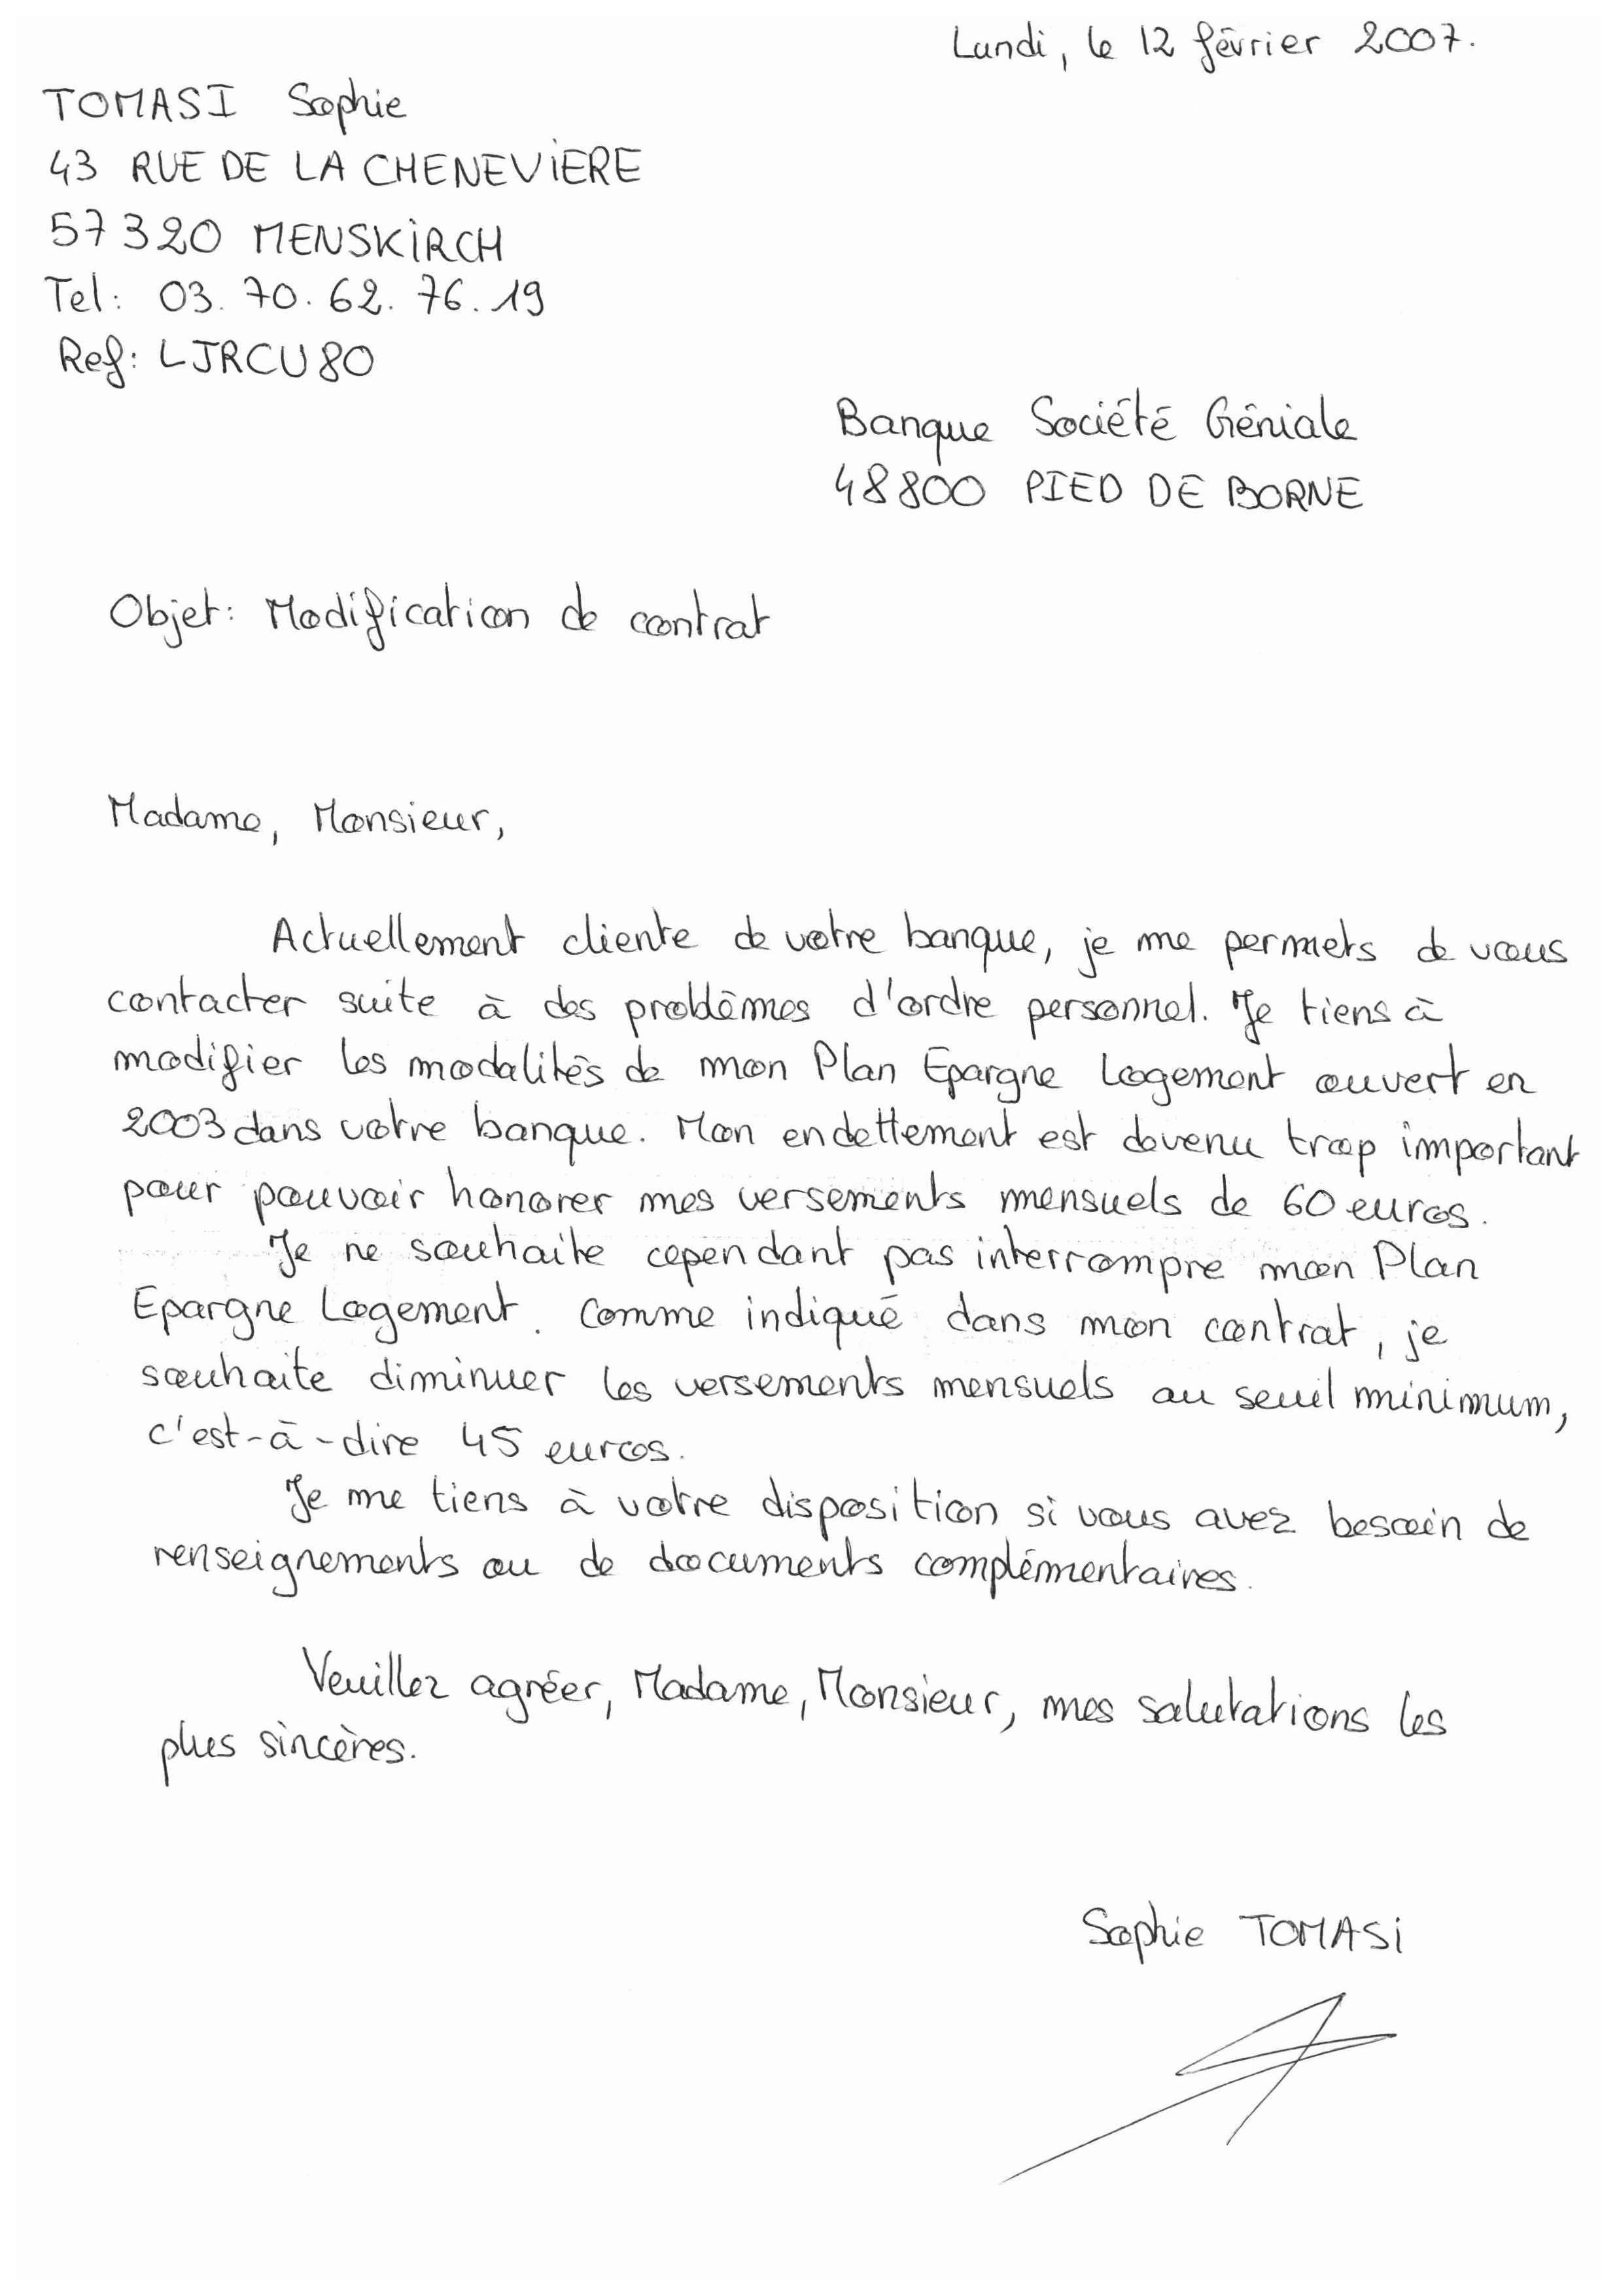 Lundi, le 12 février 2007.
TOMASI Sophie
43 RUE DE LA CHENEVIERE
57320 MENSKIRCH
Tel: 03.70.62.76.19
Ref: LJRCU80
Banque Société Géniale
48800 PIED DE BORNE
Objet: Modification de contrat
Madame, Monsieur,
Actuellement cliente de votre banque, je me permets de vous
contacter suite à des problèmes d'ordre personnel. Je tiens à
modifier les modalités de mon Plan Epargne Logement ouvert en
2003 dans votre banque. Mon endettement est devenu trop important
pour pouvoir honorer mes versements mensuels de 60 euros.
Je ne souhaite cependant pas interrompre mon Plan
Epargne Logement. Comme indiqué dans mon contrat, je
souhaite diminuer les versements mensuels au seuil minimum,
c'est-à-dire 45 euros.
Je me tiens à votre disposition si vous avez besoin de
renseignements ou de documents complémentaires.
Veuillez agréer, Madame, Monsieur, mes salutations les
plus sincères.
Sophie TOMASI